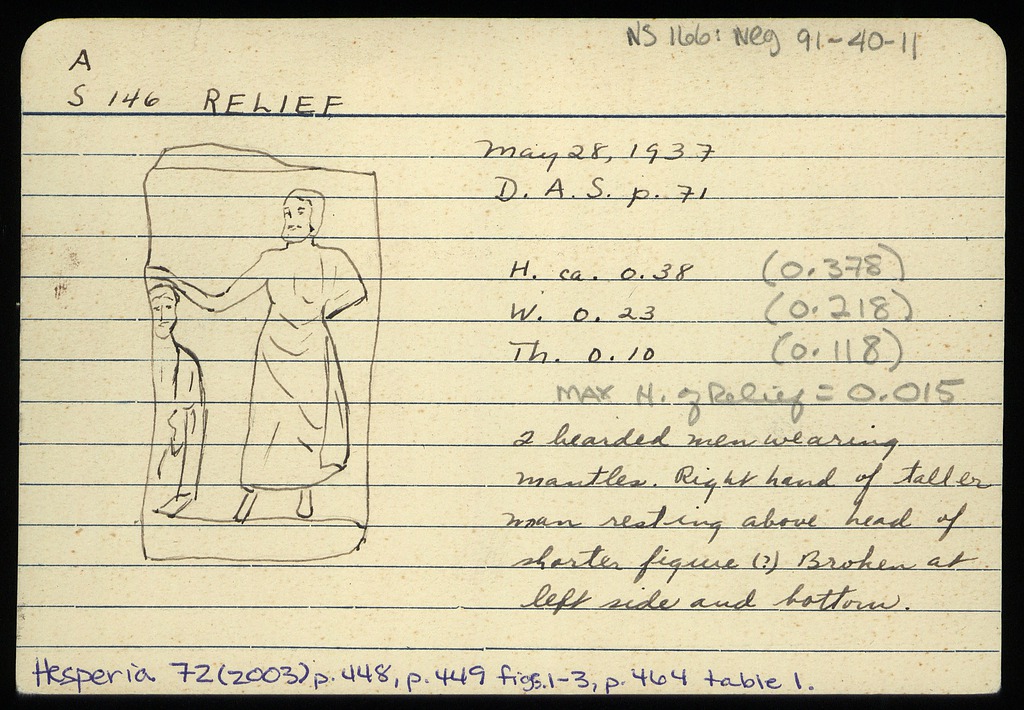 NS 166: Neg 91-40-11
A
S 146 RELIEF
May 28, 1937
D. A. S. p. 71
H. ca. 0.38 (0.378)
W. 0.23 (0.218)
Th. 0.10 (0.118)
MAX H. of Relief = 0.015
2 bearded men wearing
mantles. Right hand of taller
man resting above head of
shorter figure (?) Broken at
left side and bottom.
Hesperia 72 (2003) p. 448, p. 449 figs. 1-3, p. 464 table 1.